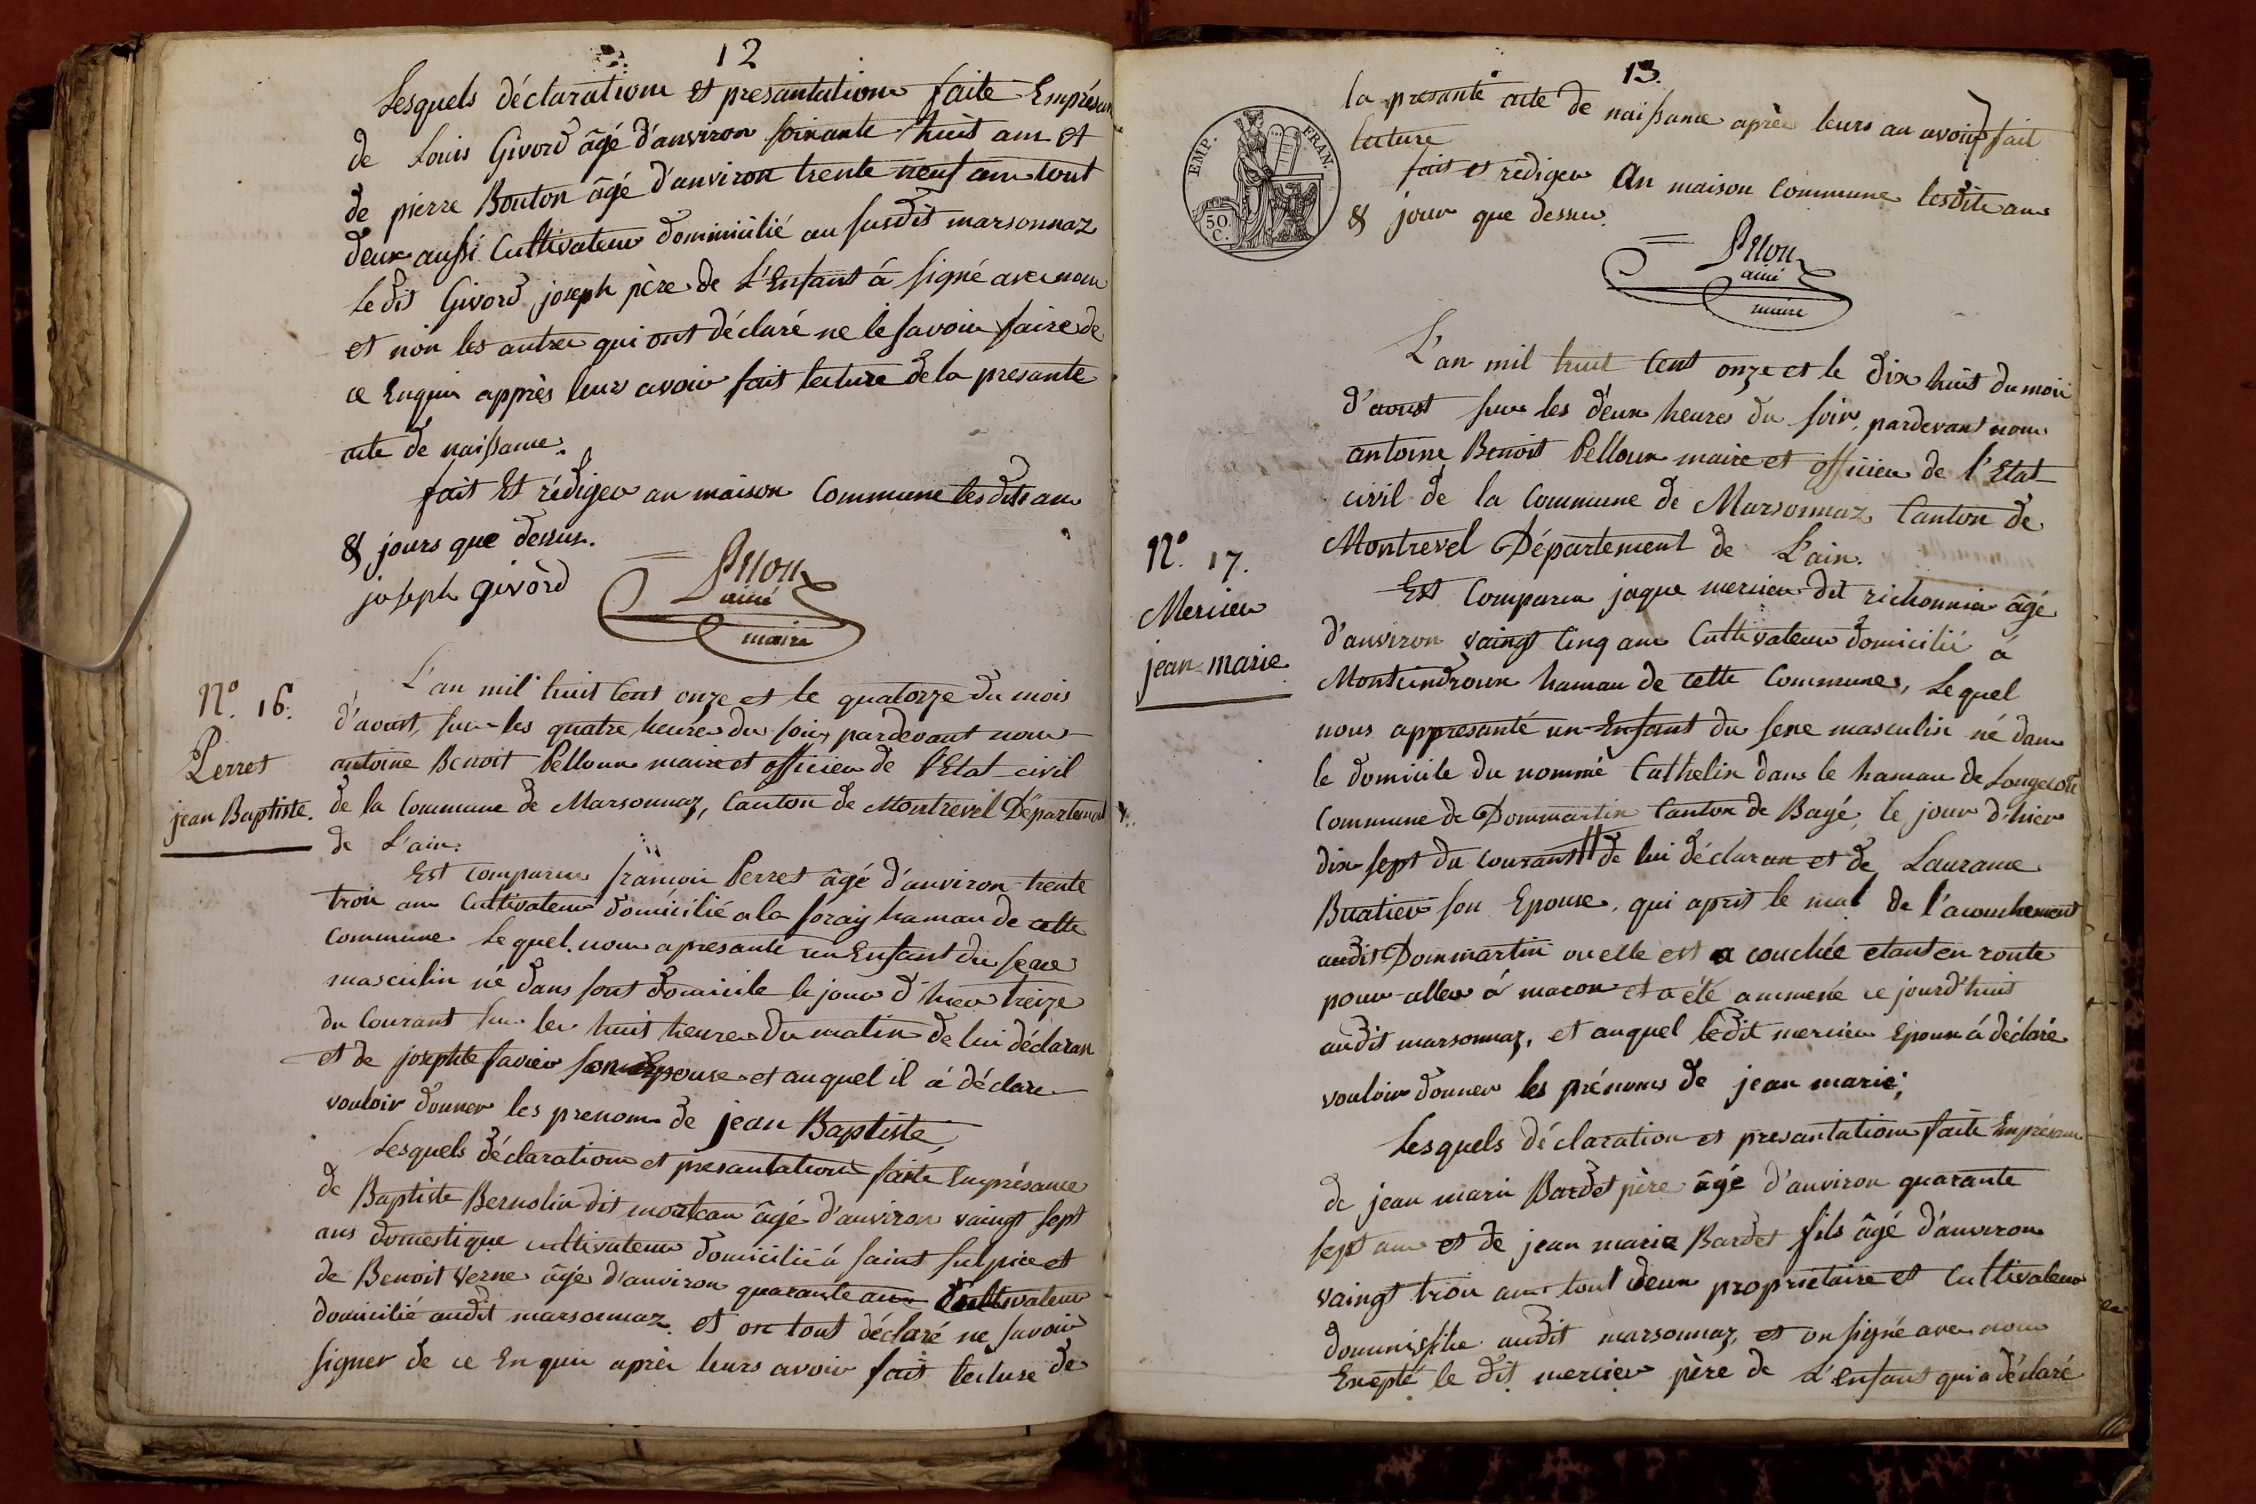 12
Lesquels déclarations et presantations faite Emprésan
de Louis Givord âgé d'anviron soixante huit ans et
de pierre Bouton âgé d'anviron trente neuf ans tout
deux aussi Cultivateur dommicilié au susdit marsonnaz
Ledit Givord joseph père de L'Enfant á signé avec nous
et non les autres qui ont déclaré ne le savoir faire de
ce Enquis apprès leurs avoir fait lecture de la presante
acte de naissance.
fait Et rédiger an maison Commune lesdits ans
& jours que dessus.
joseph givòrd
ainé
maire
N.° 16.
Perret
jean Baptiste.
L'an mil huit Cent onze et le quatorze du mois
d'aoust, sur les quatre heures du soir, pardevant nous
antoine Benoit Pelloux maire et officier de l'Etat civil
de la Commune de Marsonnaz, Canton de Montrevel Département
de L'ain.
Est comparus francois Perret âgé d'anviron trente
trois ans Cultivateur domicilié a la foray hamau de cette
Commune Lequel nous apresanté un Enfant du sexe
masculin né dans sont domicile le jour d'hier treize
du Courant sur les huit heures du matin de lui déclaran
et de josephte favier son Epouse et auquel il á déclare
vouloir donner les prenoms de jean Baptiste,
Lesquels déclarations et presantations faite Emprésance
de Baptiste Bernolin dit moateau âgé d'anviron vaingt sept
ans domestique cultivateur domicilié á saint sulpice et
de Benoit Verne âgé d'anviron quarante ans Cultivateur
domicilié audit marsonnaz. et on tout déclaré ne savoir
signer de ce Enquis après leurs avoir fait lecture de
13.
EMP. FRAN.
50.
C.
la presante acte de naissance après leurs an avoir fait
lecture
fait et rédiger An maison Commune lesdits ans
& jour que dessus.
ainé
maire
N.° 17.
Mercier
jean marie
L'an mil huit Cent onze et le dix huit du mois
d'aoust sur les deux heures du soir, pardevant nous
antoine Benoit Pelloux maire et officier de l'Etat
civil de la Commune de Marsonnaz Canton de
Montrevel Département de L'ain.
Est Comparu jaque mercier dit richonnier âgé
d'anviron vaingt Cinq ans Cultivateur domicilié á
Montcindroux hamau de cette Commune, Lequel
nous appresanté un Enfant du sexe masculin né dans
le domicile du nommé Cathelin dans le hamau de Longecour
Commune de Dommartin Canton de Bagé, le jour d'hier
dix-sept du courant de lui déclaran et de Laurance
Buatier son Epouse, qui aprit le mal de l'acouchement
audit Dommartin ou elle est a couchée etant en route
pour aller á macon et a été ammené ce jourd'huit
audit marsonnaz, et auquel ledit mercier Epoux á déclaré
vouloir donner les prénoms de jean marie;
Lesquels déclaration et presantations faite Emprésan
de jean marie Bardet père âgé d'anviron quarante
sept ans et de jean marie Bardet fils âgé d'anviron
vaingt trois ans tout deux propriétaire et Cultivateur
audit marsonnaz, et on signé avec nous
Excepté le dit mercier père de L'enfant qui a déclaré